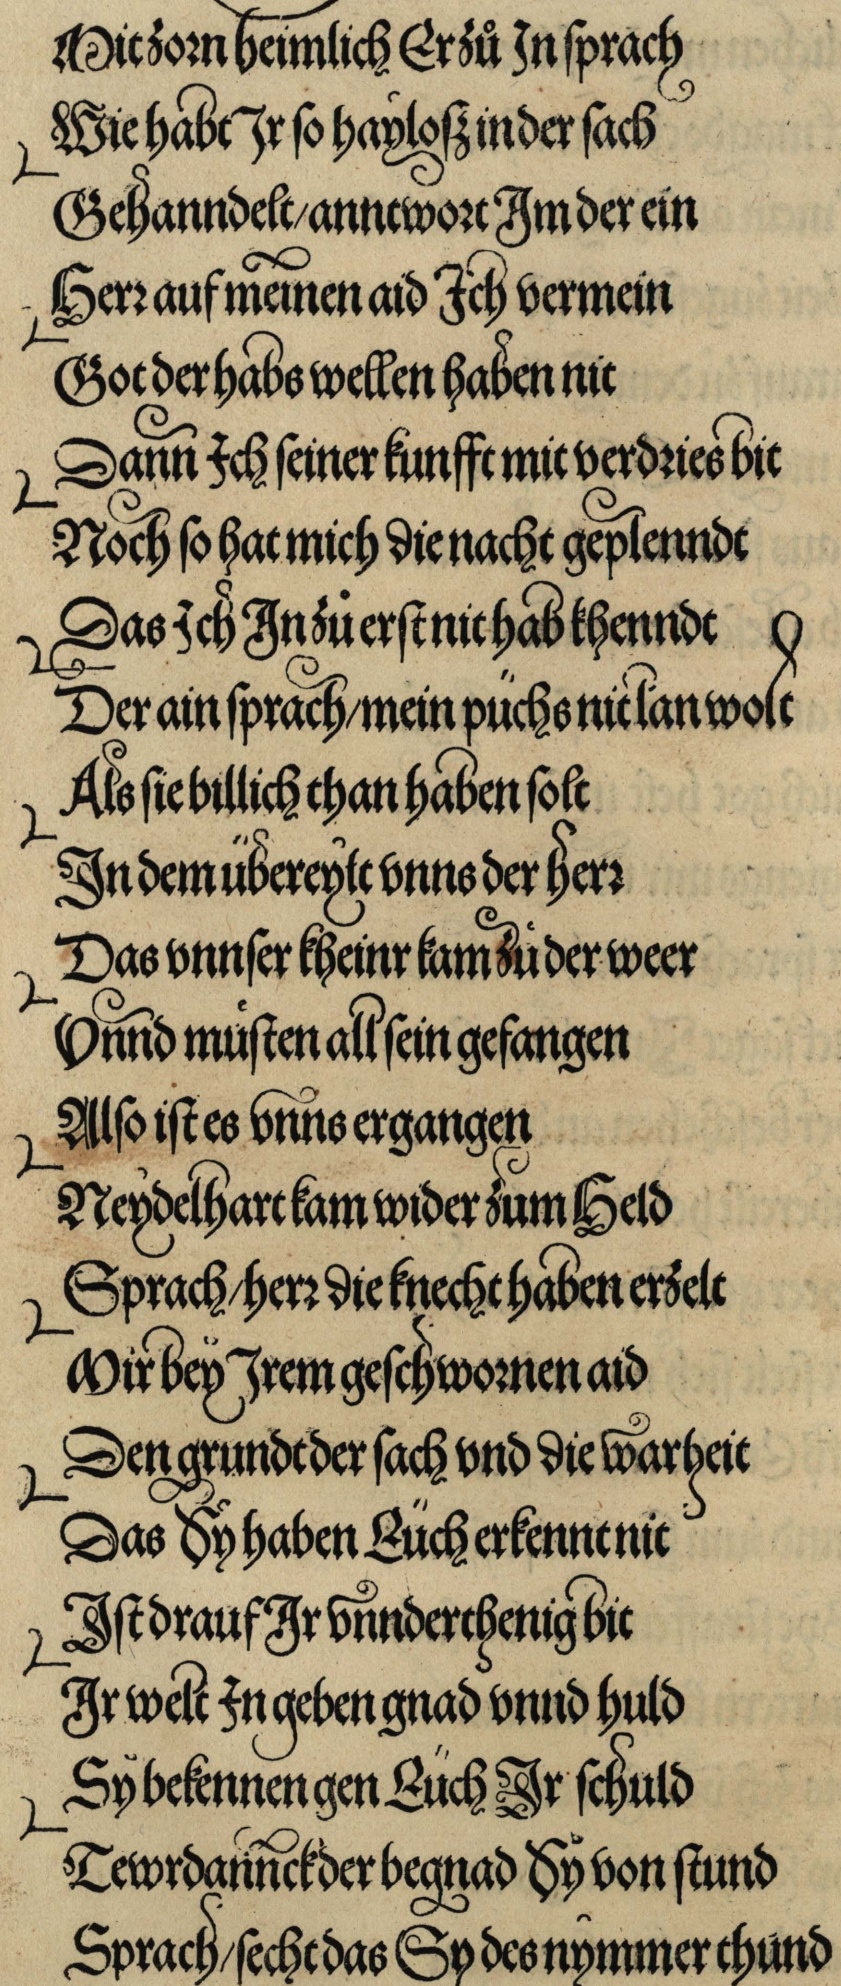 Mit zorn heimlich Er zů In sprach
Wie habt Ir so haylosz in der sach
Gehanndelt/ anntwort Im der ein
Herr auf meinen aid Ich vermein
Got der habs wellen haben nit
Dann Ich seiner kunfft mit verdries bit
Noch so hat mich die nacht geplenndt
Das Ich In zů erst nit hab khenndt
Der ain sprach/ mein püchs nit lan wolt
Als sie billich than haben solt
In dem übereylt vnns der herr
Das vnnser kheinr kam zů der weer
Vnnd můsten all sein gefangen
Also ist es vnns ergangen
Neydelhart kam wider zum Held
Sprach/ herr die knecht haben erzelt
Mir bey Irem geschwornen aid
Den grundt der sach vnd die warheit
Das Sy haben Eüch erkennt nit
Ist drauf Ir vnnderthenig bit
Ir welt In geben gnad vnnd huld
Sy bekennen gen Eüch Ir schuld
Tewrdannckh der begnad Sy von stund
Sprach/ secht das Sy des nymmer thund